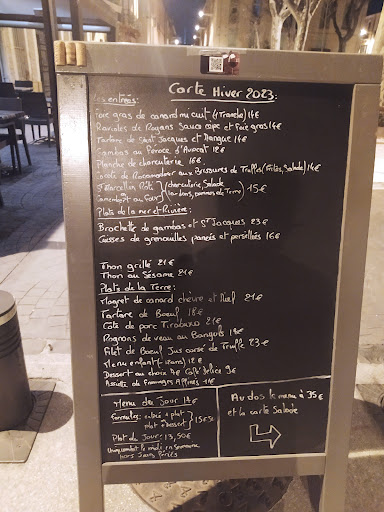 Carte Hiver 2023:
Les entrées:
Foie gras de canard mi cuit (4 Tranche) 14€
Ravioles de Royans Sauce cèpe et Foie gras 14€
Tartare de Saint Jacques et Mangue 14€
Gambas au Avocat 12€
Planche de charcuterie 16€
de Rocamadour aux Brisures de Truffes (Salade) 14€
St Marcellin Rôti (charcuterie, Salade
ou
Camembert au Four 15€
Plats de la mer et Rivière:
Brochette de gambas et St Jacques 23€
Cuisses de grenouilles panées et persillées 16€
Thon grillé 21€
Thon au Sésame 21€
Plats de la Terre:
Magret de canard chèvre et Miel 21€
Tartare de Boeuf 18€
Cote de porc 21€
Rognons de veau au Banyuls 18€
Filet de Boeuf Jus corsé de Truffe 23€
Menu enfant (-12ans) 12€
Dessert au choix 7€ Café Délice 9€
Assiette de Fromages Affinés 11€
Menu du Jour
Formules: entrée + plat
plat + Dessert 15€50
Plat du Jour: 13,50€
Uniquement le midi en Semaine
hors Jours Fériés
Au dos le menu à 35€
et la carte Salade